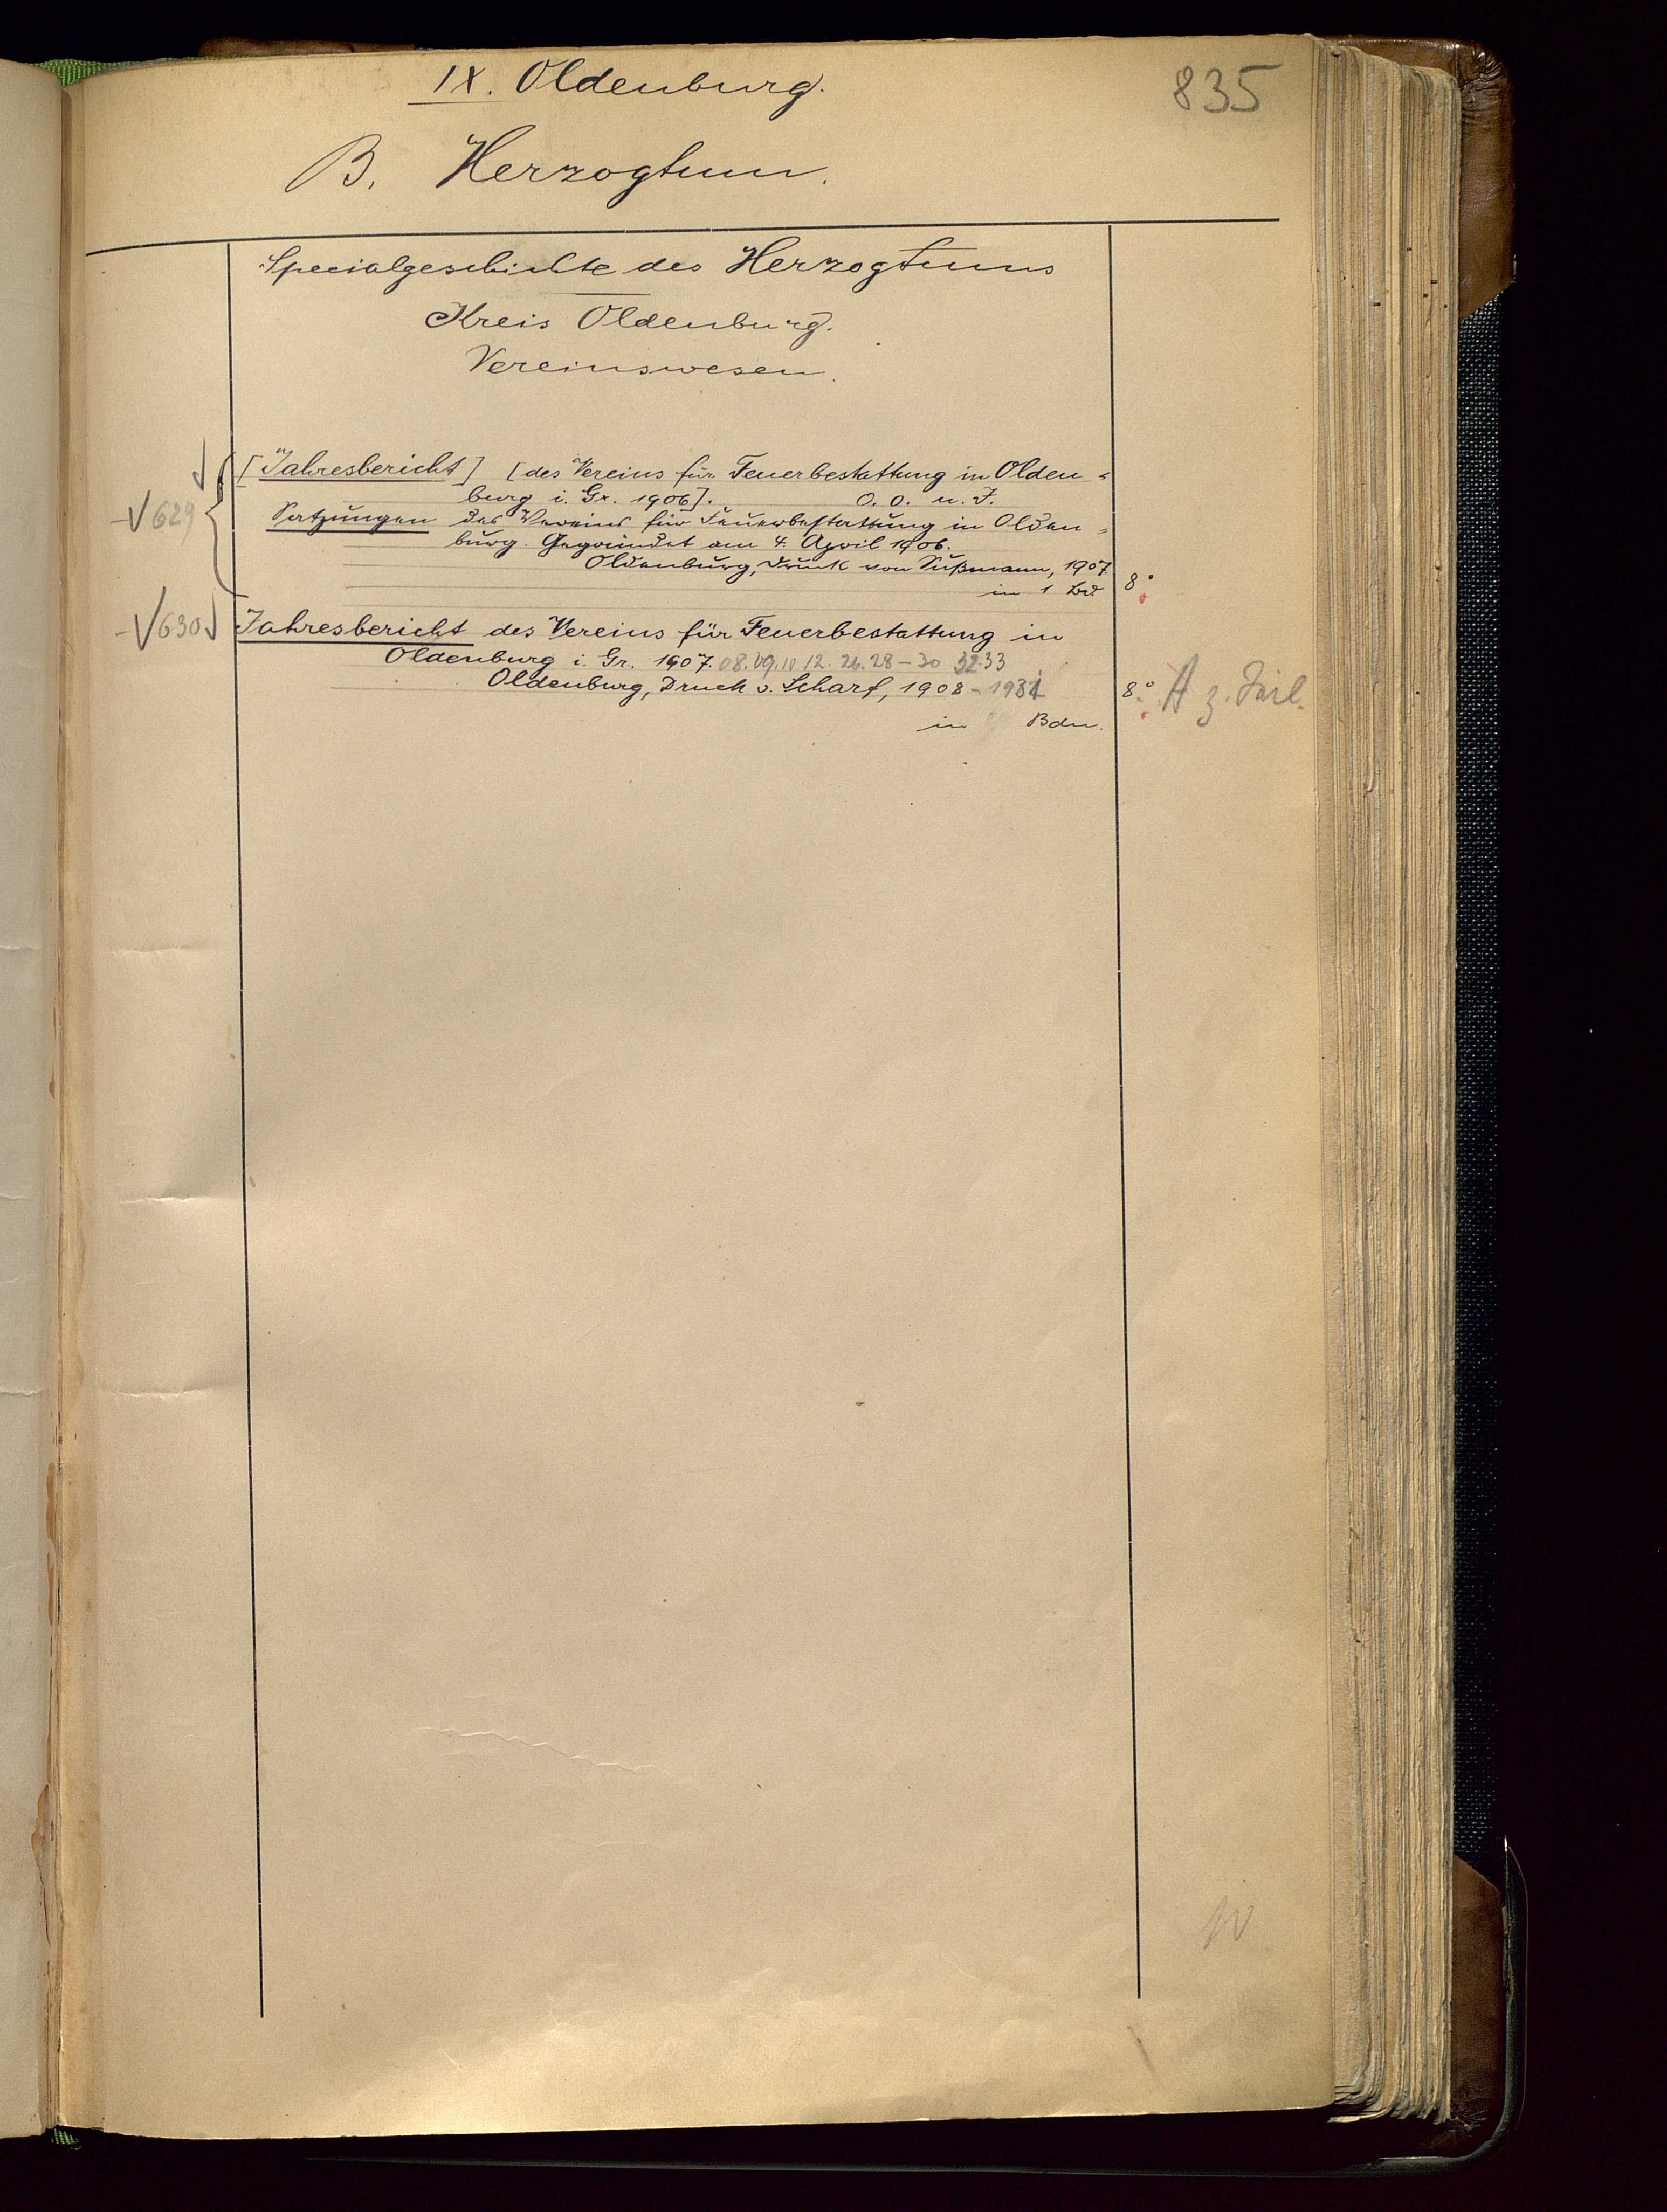 IX. Oldenburg.
835
B. Herzogtum.
Specialgeschichte des Herzogtums
Kreis Oldenburg.
Vereinswesen.
[Jahresbericht] [des Vereins für Feuerbestattung in Olden=
burg i. Gr. 1906]. O. O. u. J.
629
Satzungen des Vereins für Feuerbestattung in Olden=
burg. Gegründet am 4. April 1906.
Oldenburg, Druck von Sußmann, 1907.
in 1 Bd. 8°
630 Jahresbericht des Vereins für Feuerbestattung in
Oldenburg i. Gr. 1907. 08. 09. 10 12. 26. 28-30 32.33
Oldenburg, Druck v. Scharf, 1908-1934 8° A z. Teil.
in Bdn.